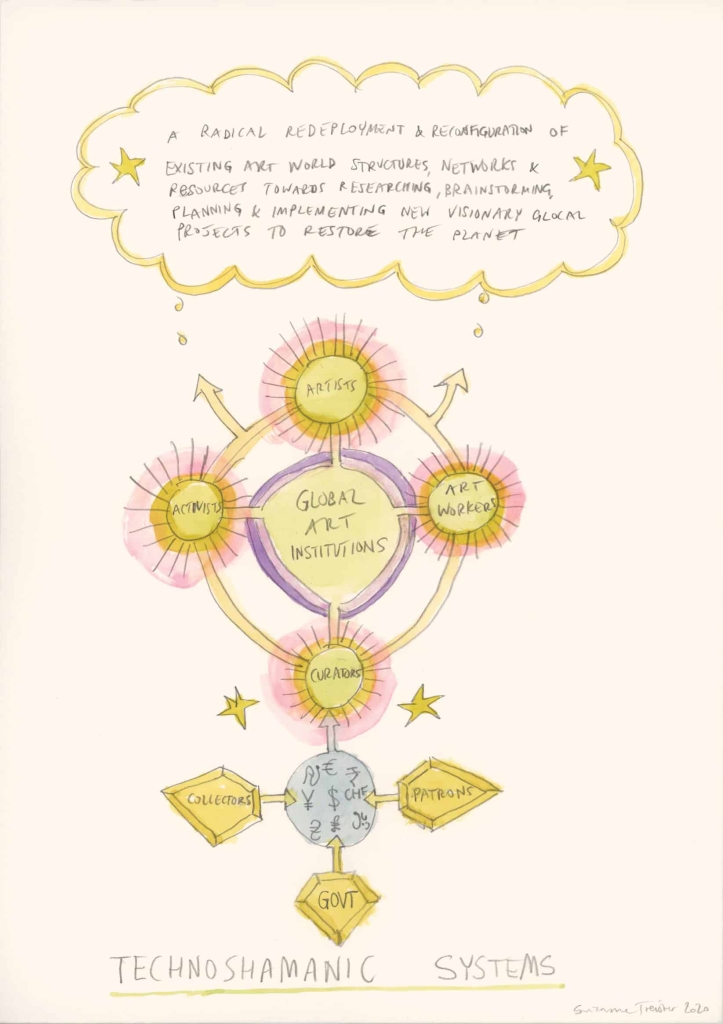 A RADICAL REDEPLOYMENT & RECONFIGURATION OF
EXISTING ART WORLD STRUCTURES, NETWORKS &
RESOURCES TOWARDS RESEARCHING, BRAINSTORMING,
PLANNING & IMPLEMENTING NEW VISIONARY GLOCAL
PROJECTS TO RESTORE THE PLANET
ARTISTS
ACTIVISTS
GLOBAL
ART
INSTITUTIONS
ART
WORKERS
CURATORS
COLLECTORS
€
¥ $ CHF
PATRONS
GOVT
TECHNOSHAMANIC SYSTEMS
Suzanne Treister 2020